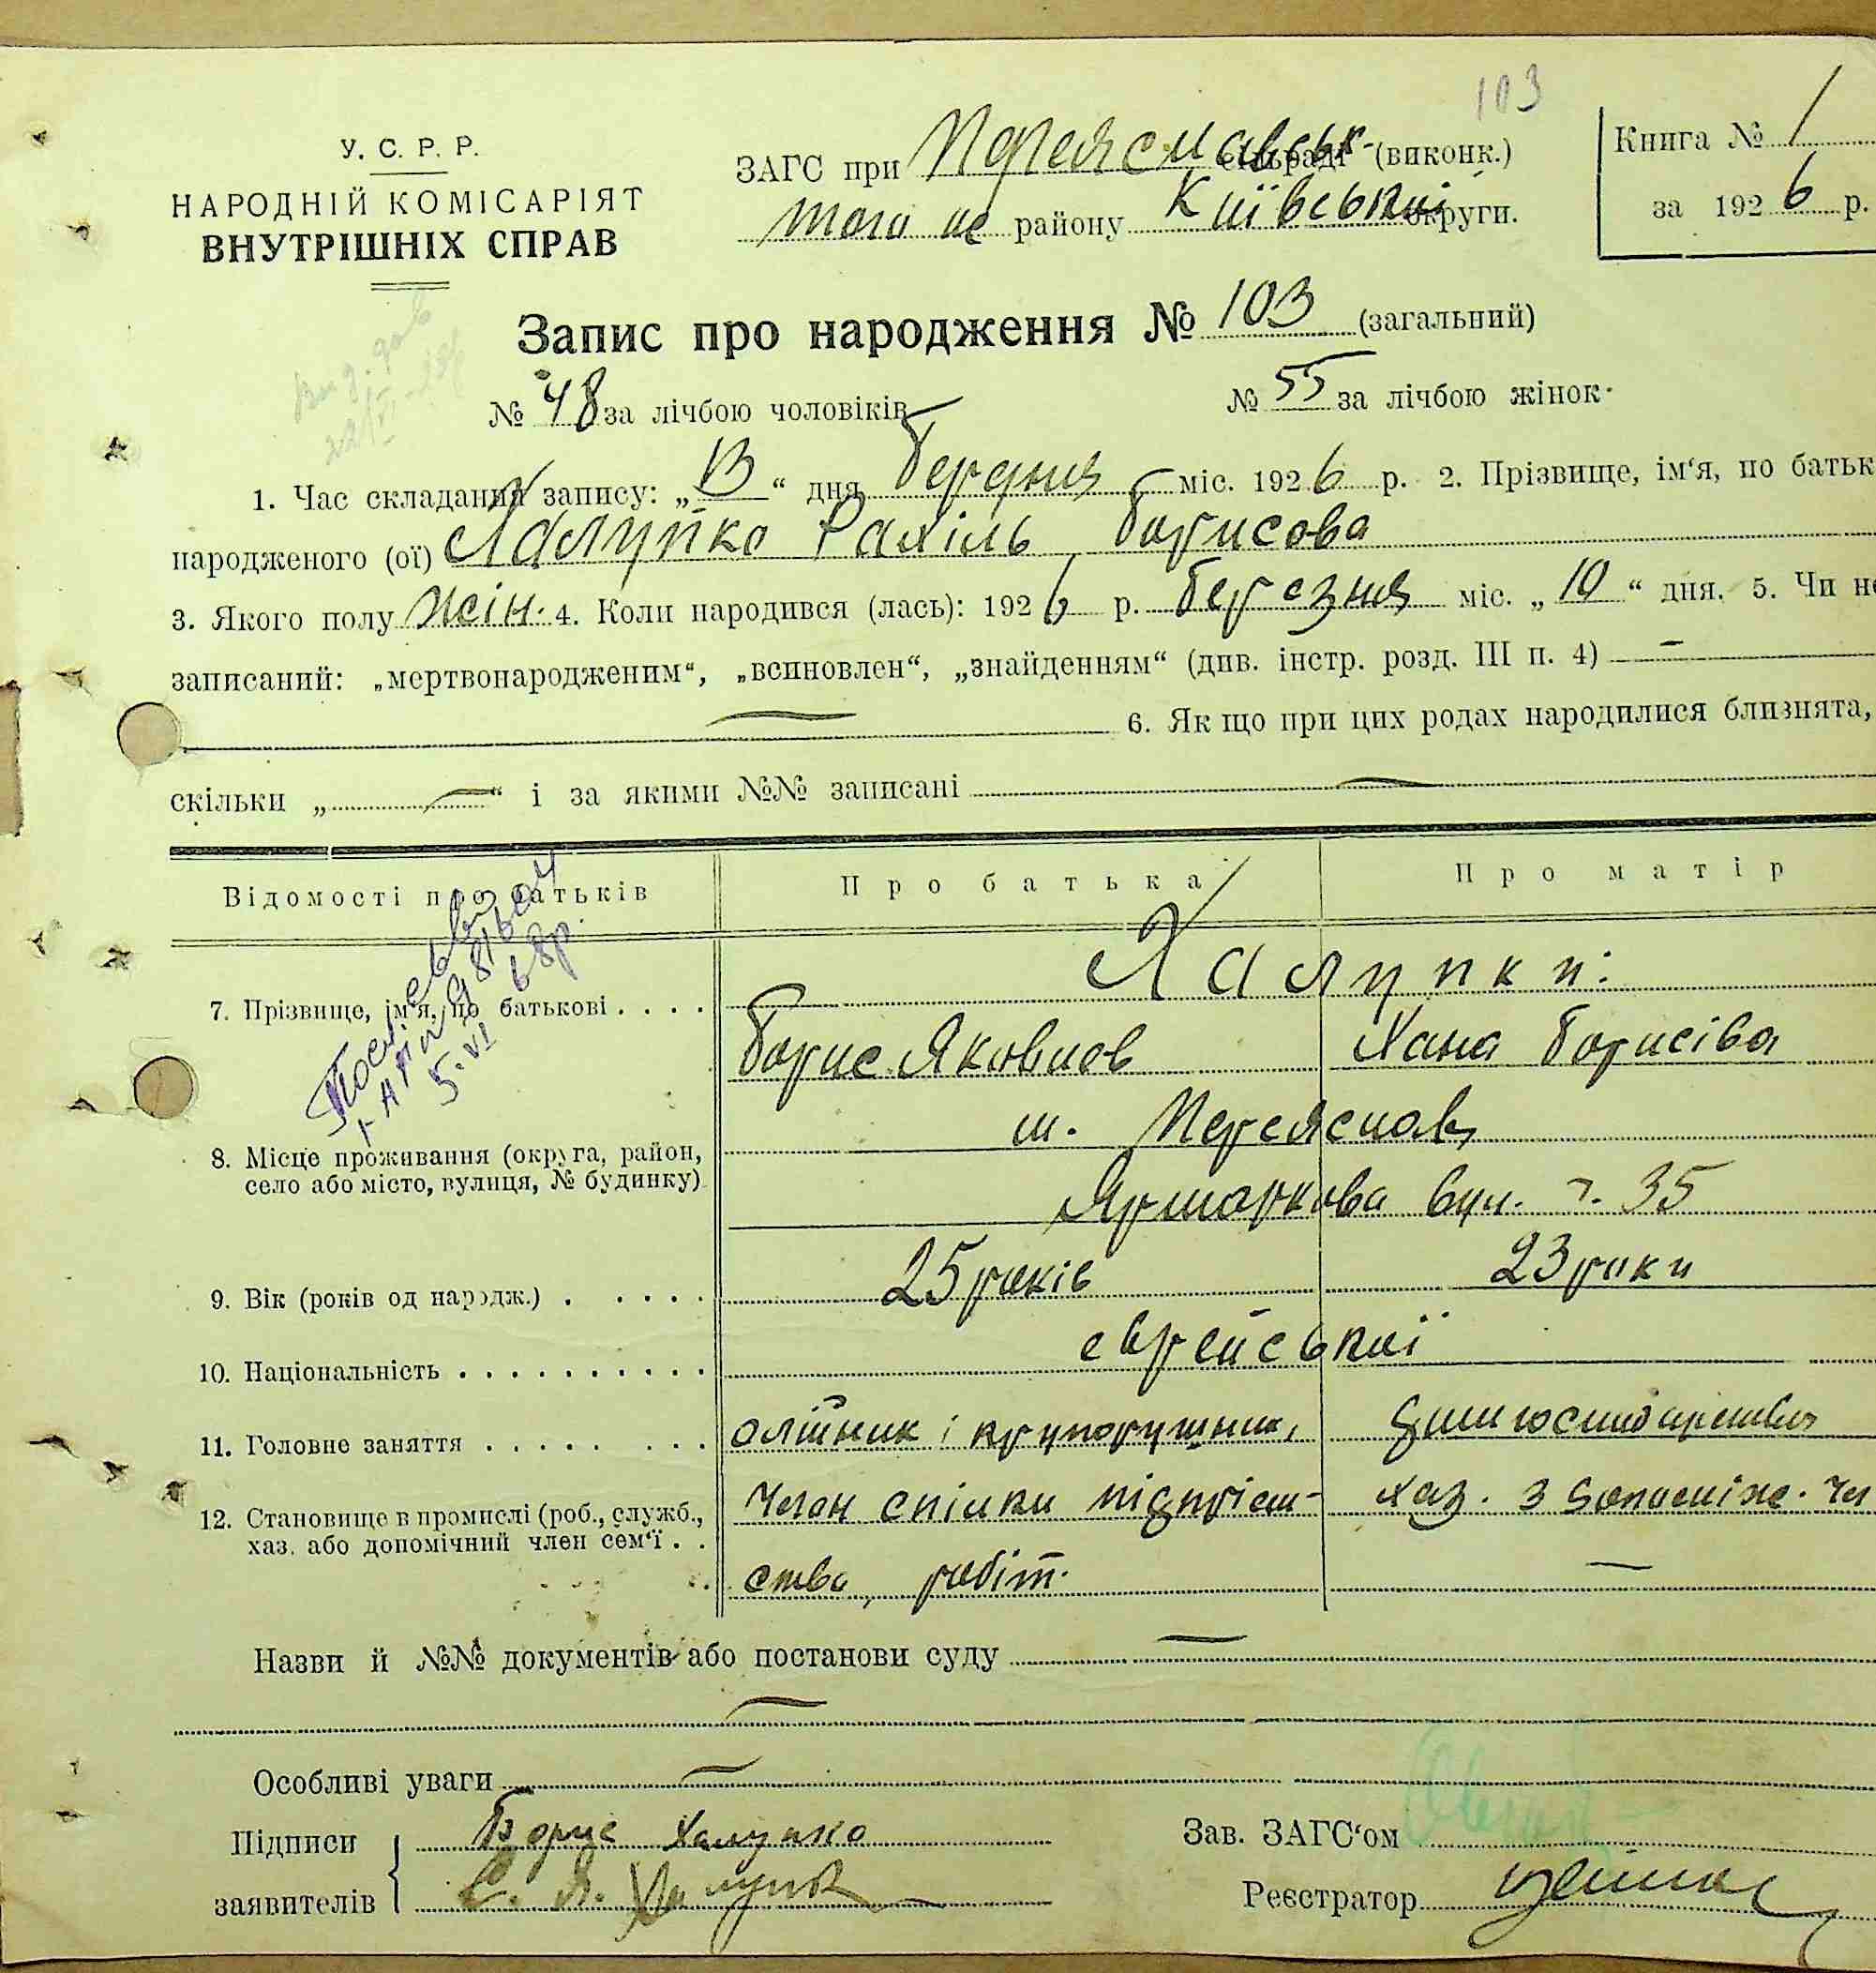 103
У. С. Р. Р.
НАРОДНІЙ КОМІСАРІЯТ
ВНУТРІШНІХ СПРАВ
ЗАГС при Переяславськ- сільраді (виконк.)
того же району Київської округи.
Книга № 1
за 1926 р.
Запис про народження № 103 (загальний)
№ 48 за лічбою чоловіків
№ 55 за лічбою жінок.
1. Час складання запису: „13“ дня березня міс. 1926 р. 2. Прізвище, ім‘я, по батьк
народженого (ої) Халупко Рахіль Борисова
3. Якого полу жін. 4. Коли народився (лась): 1926 р. березня міс. „10“ дня. 5. Чи не
записаний: „мертвонародженим“, „всиновлен“, „знайденням“ (див. інстр. розд. III п. 4) —
— 6. Як що при цих родах народилися близнята,
скільки „—“ і за якими №№ записані —
Відомості про батьків
Про батька
Про матір
7. Прізвище, ім‘я, по батькові . . . .
Халупки:
Борис Яковлев
Хана Борисіва
8. Місце проживання (округа, район,
село або місто, вулиця, № будинку)
м. Переяслав
Ярмаркова вул. ч. 35
9. Вік (років од народж.) . . . . .
25 років
23 роки
10. Національність . . . . . . . . . .
еврейської
11. Головне заняття . . . . . . . .
олійник і крупорушник,
дом господарством
12. Становище в промислі (роб., служб.,
хаз. або допомічний член сем‘ї . .
член спілки підприєм-
хаз. з
ства, робіт.
—
5.VI 68р.
Назви й №№ документів або постанови суду —
—
Особливі уваги —
Підписи
заявителів
Борис Халупко
Зав. ЗАГС‘ом
Реєстратор